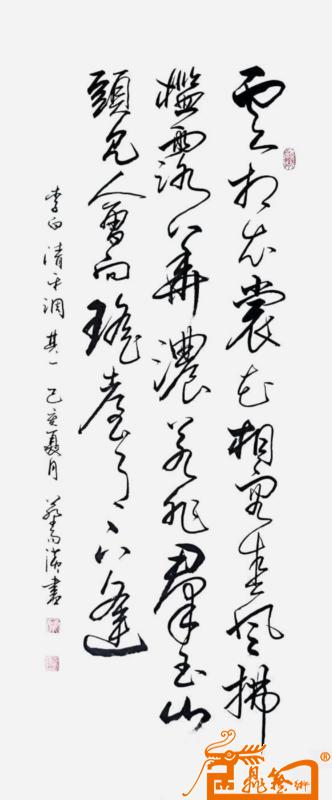 雲想衣裳花想容春風拂
檻露華濃若非羣玉山
頭見會向瑤臺月下逢
李白清平調其一己亥夏月書